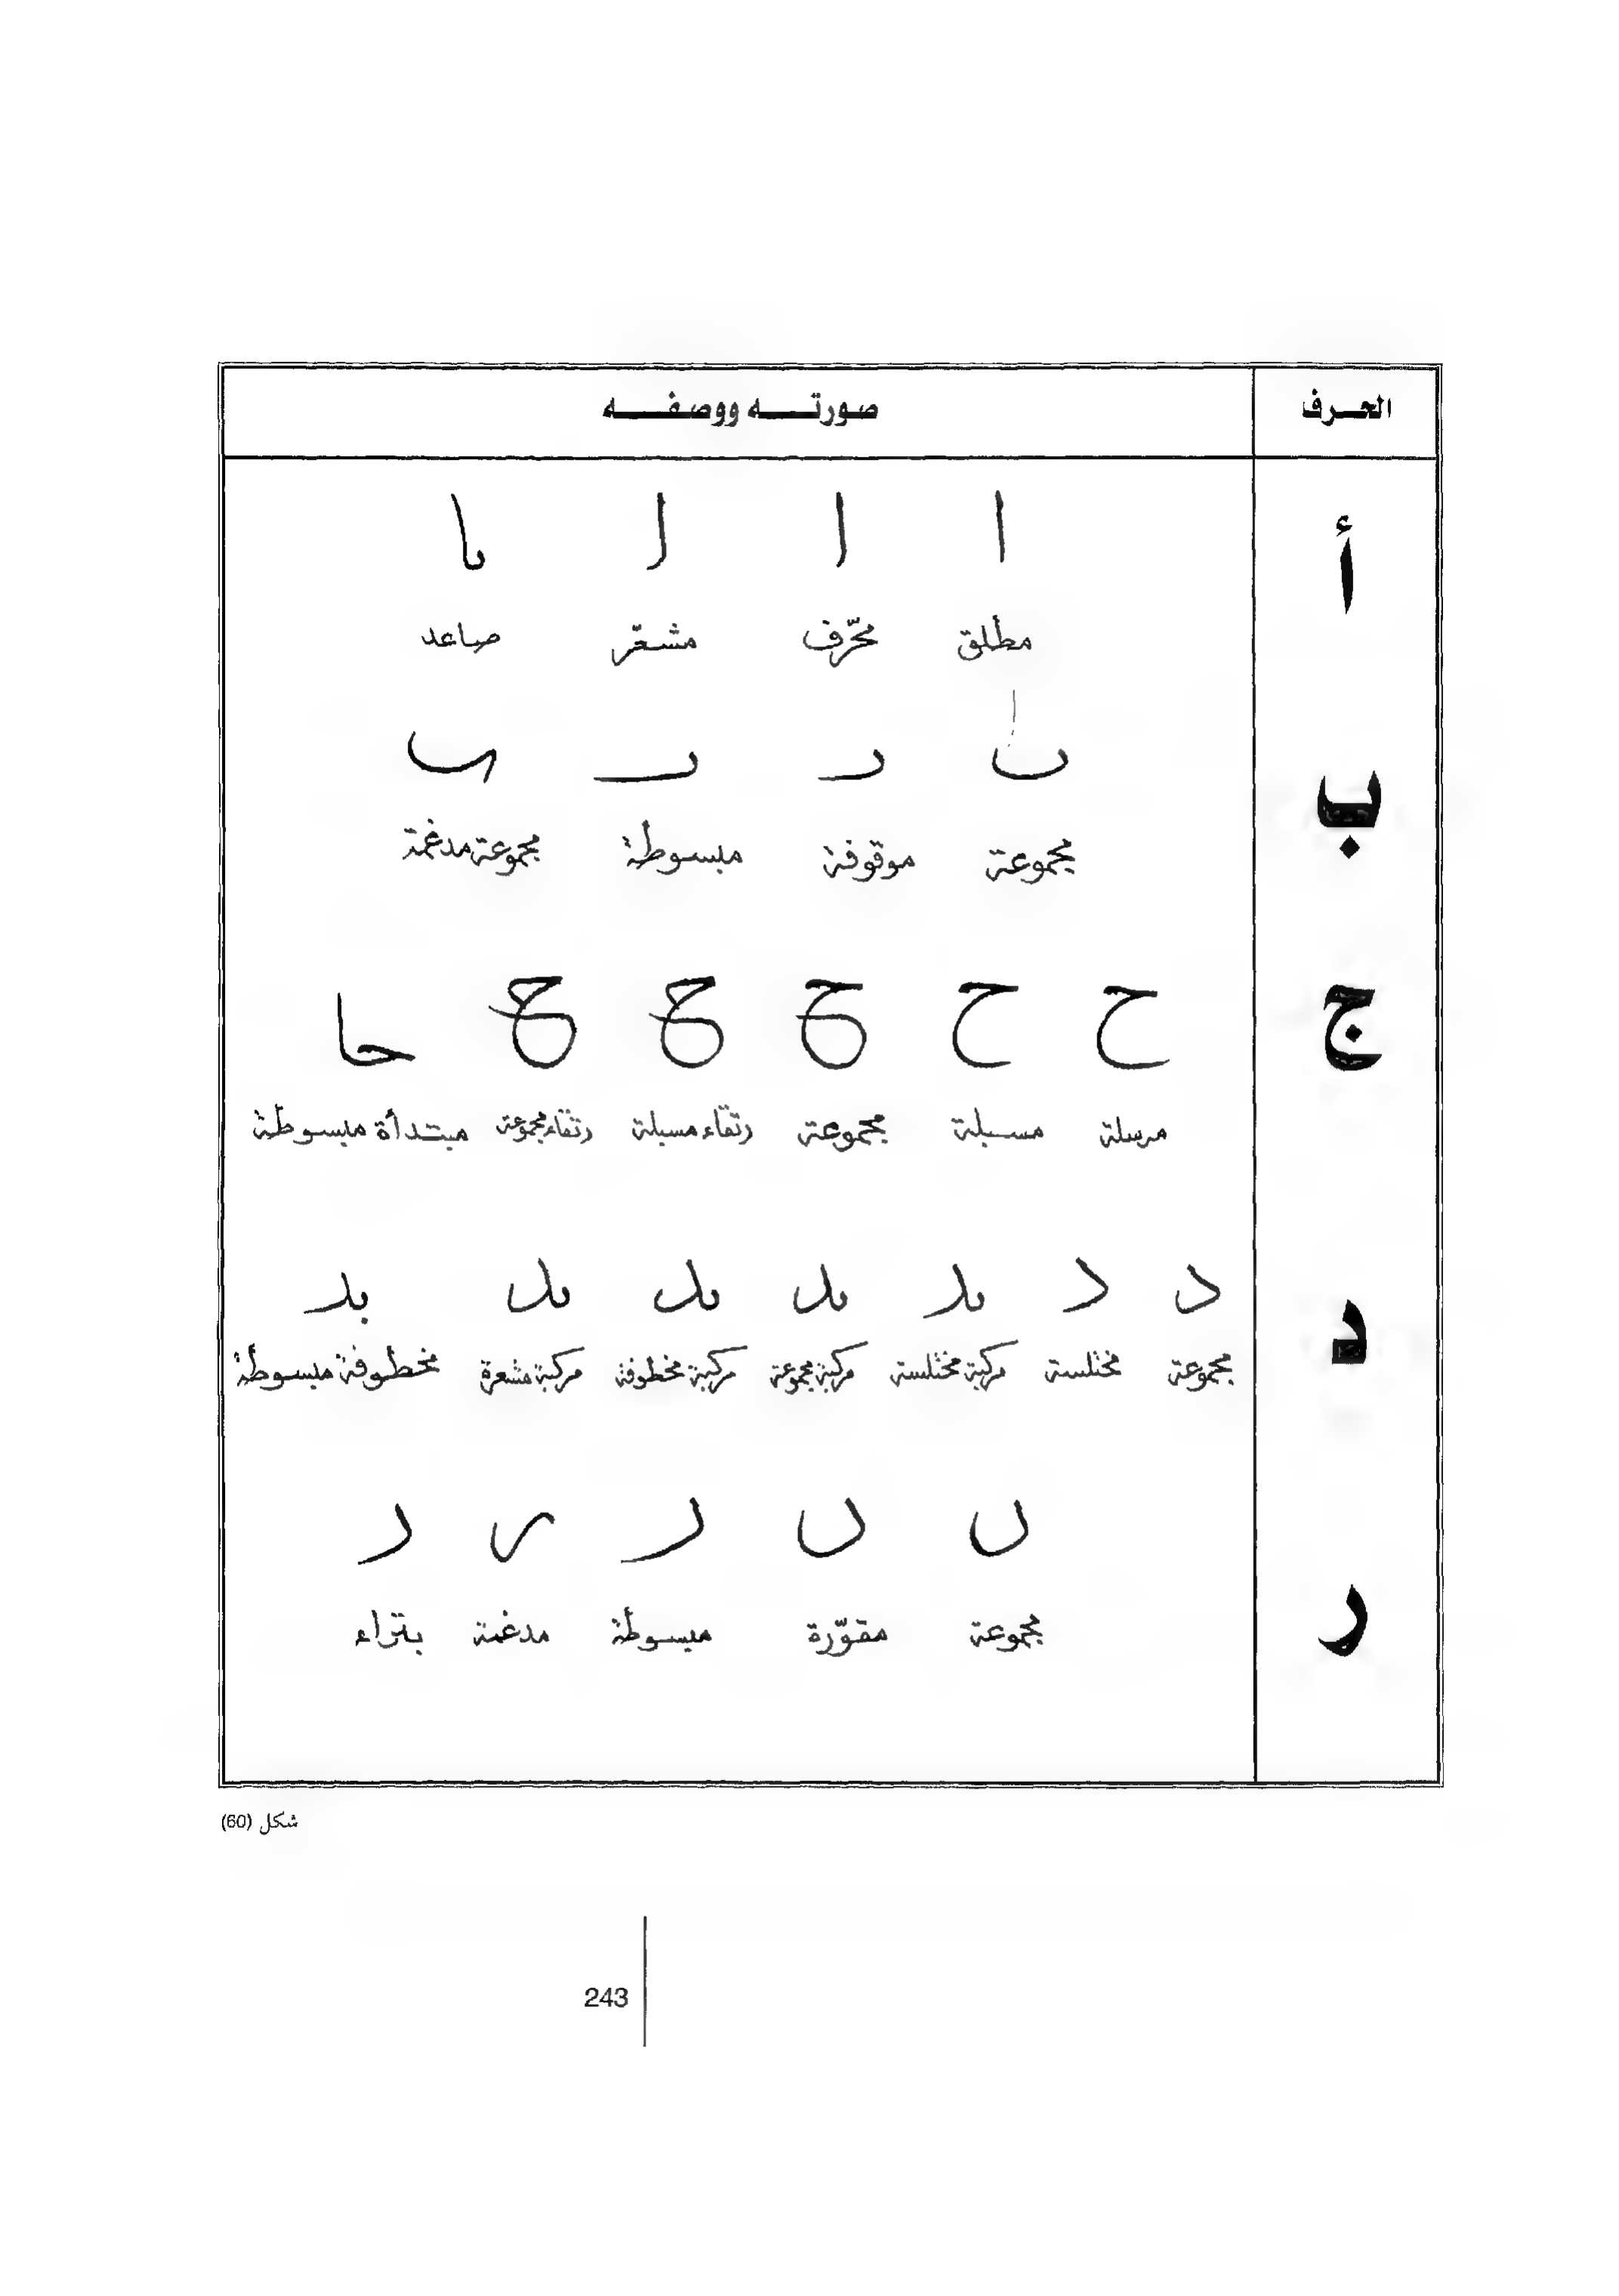 الحرف صورته ووصفه
أ
ا ا ا ـا
مطلق محرّف مشعّر صاعد
ب
مجموعة موقوفة مبسوطة مجموعة مدغمة
ج
ح ح ح ح ح حا
مرسلة مسبلة مجموعة رتقاء مسبلة رتقاء مجموعة مبتدأة مبسوطة
د
د د ـد ـد ـد ـد بد
مجموعة مختلسة مركبة مختلسة مركبة مجموعة مركبة مخطوفة مركبة مشعرة مخطوفة مبسوطة
ر
ر ر ر ر ر
مجموعة مقوّرة مبسوطة مدغمة بتراء
شكل (60)
243